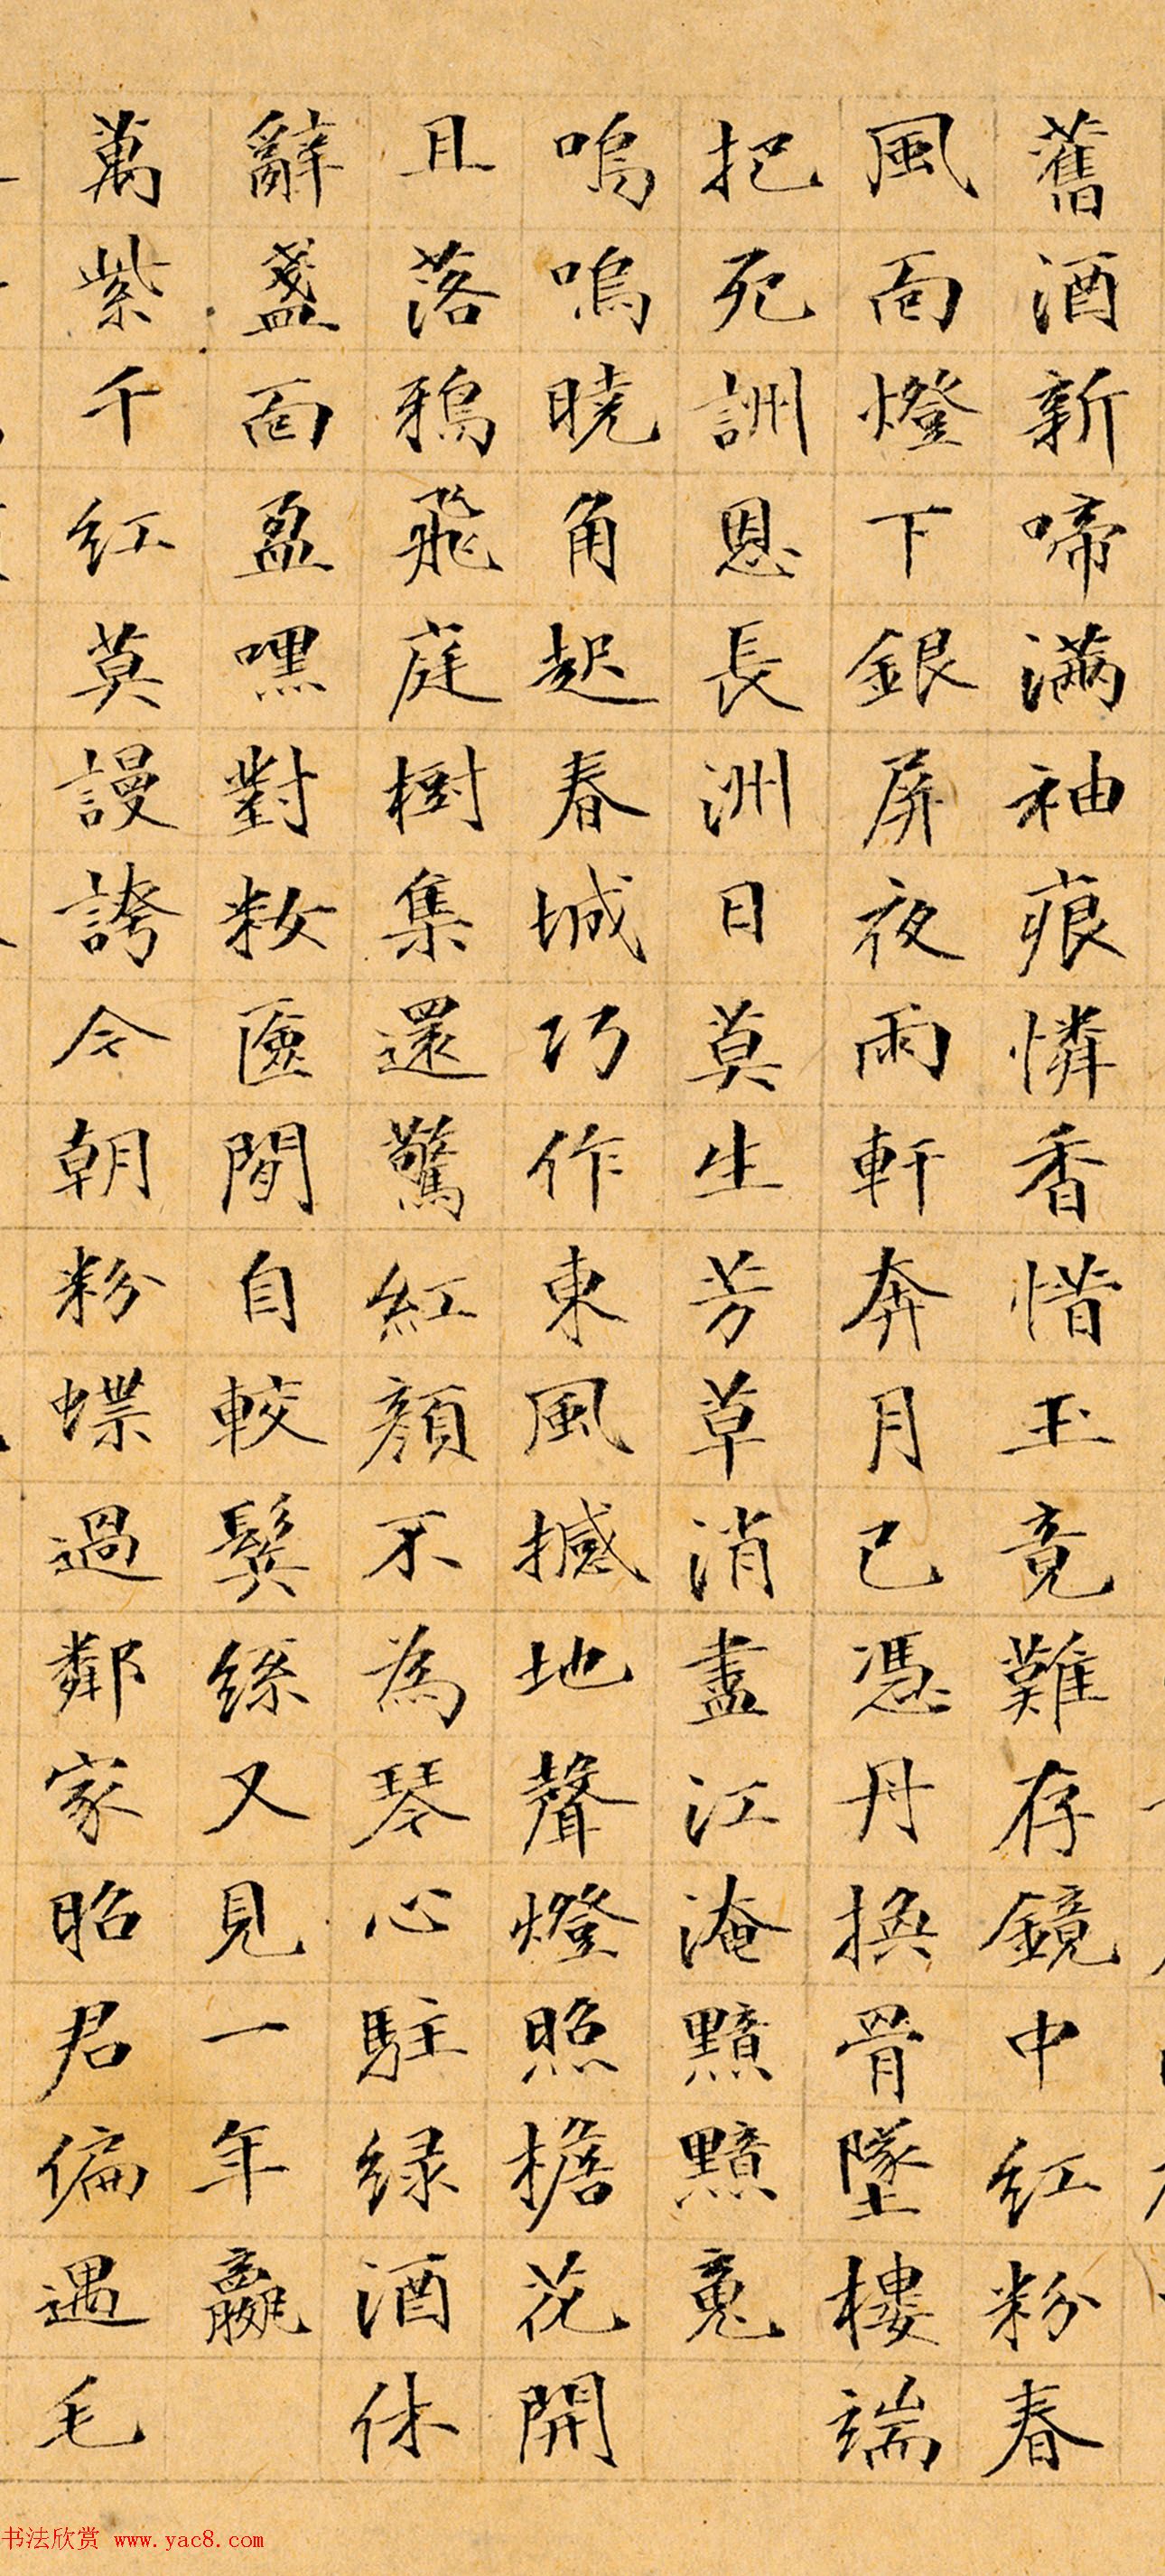 舊酒新啼滿袖痕憐香惜玉竟難存鏡中紅粉春
風面燈下銀屏夜雨軒奔月已憑丹換骨墜樓端
把死訓恩長洲日莫生芳草消盡江淹黯黯䰟
嗚嗚曉角起春城巧作東風撼地聲燈照檐花開
且落鴉飛庭樹集還驚紅顏不為琴心駐緑酒休
辭盞面盈嘿對妝匳閒自較鬓絲又見一年贏
萬紫千紅莫謾誇今朝粉蝶過鄰家昭君偏遇毛
书法欣赏 www.yac8.com